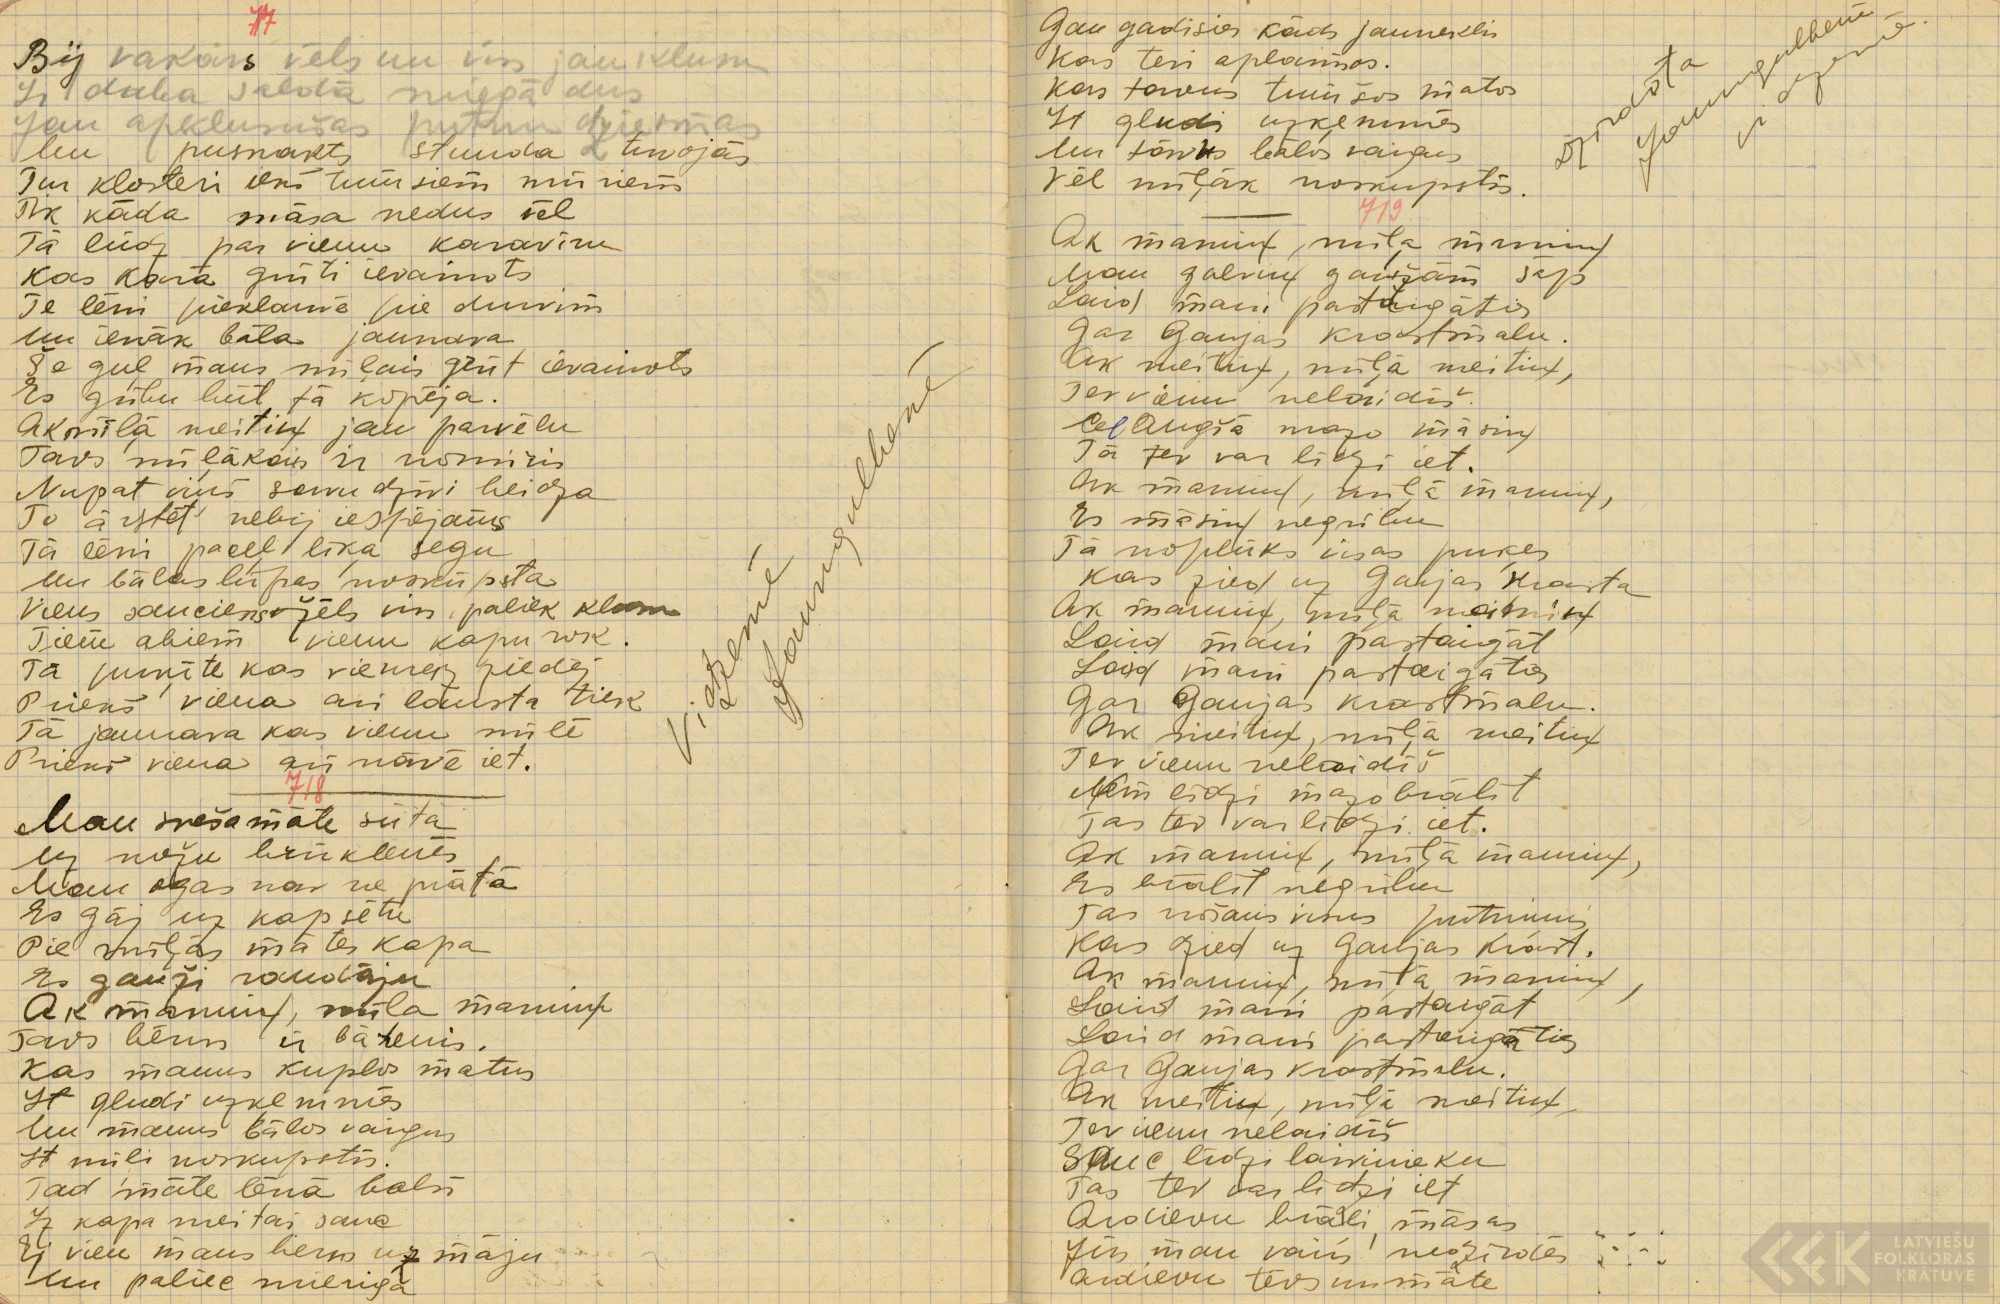 717
Bij vakars vēls un viss jau klusu
Ir daba saldā miegā dus
Jau apklusušas putnu dziesmas
Un pusnakts stunda tuvojās
Tur klosterī iekš tumšiem mūriem
Tik kāda māsa nedus vēl
Tā lūdz par vienu karavīru
Kas karā grūti ievainots
Te lēni pieklauvē pie durvīm
Un ienāk bāla jaunava
Še guļ mans mīļais grūt ievainots
Es gribu būt tā kopēja.
Ak mīļā meitiņ jau parvēlu
Tavs mīļākais ir nomiris
Nupat viņš savu dzīvi beidza
To ārstēt nebij iespējams
Tā lēni paceļ līķa segu
Un bālas lūpas noskūpsta
Viens sauciens žēls viss paliek klusu
Tiem abiem vienu kapu rok.
Tā puķīte kas vienreiz ziedēj
Priekš viena arī lausta tiek
Tā jaunava kas vienu mīlē
Priekš viena arī nāvē iet.
Vidzemē
Jaungulbenē
718
Man svešamāte sūta
Uz nožu brūklenēs
Man ogas nav ne prātā
Es gāj uz kapsētu
Pie mīļās mātes kapa
Es gauži raudāju
Ak mamiņ, mīļa mamiņ
Tavs bērns ir bārenis.
Kas manus kuplos matus
It gludi uzķemmēs
Un manus bālos vaigus
It mīli noskūpstīs.
Tad māte lēnā balsī
Iz kapa meitai sauc
Ej vien mans bērns uz māju
Un paliec mierīgā
Gan gadīsies kāds jauneklis
Kas tevi aplaimos.
Kas tavus tumšos matos
It gludi uzķemmēs
Un tavus bālos vaigus
Vēl mīļāk noskūpstīs.
dzirdēta
Jaungulbenē
Vidzemē.
719
Ak mamiņ, mīļa mamiņ
Man galviņ gaužām sāp
Laid mani pastaigāties
Gar Gaujas krastmalu.
Ak meitiņ, mīļā meitiņ,
Tev vienu nelaidīš.
Cel Augšā mazo māsiņ
Tā tev var līdzi iet.
Ak mamiņ, mīļā mamiņ,
Es māsiņ negribu
Tā noplūks visas puķes
Kas zied uz Gaujas krasta
Ak mamiņ, mīļā mamiņ
Laid mani pastaigāt
Laid mani pastaigāties
Gar Gaujas krastmalu.
Ak meitiņ, mīļā meitiņ
Tev vienu nelaidīš
Ņem līdzi mazo brālīt
Tas tev var līdzi iet.
Ak mamiņ, mīļā mamiņ,
Es brālīt negribu
Tas nošaus visus putniņus
Kas dzied uz Gaujas krast.
Ak mamiņ, mīļā mamiņ,
Laid mani pastaigāt
Laid mani pastaigāties
Gar Gaujas krastmalu.
Ak meitiņ, mīļā meitiņ,
Tev vienu nelaidīš
Sauc līdzi laivinieku
Tas tev var līdzi iet
Ardievu brāļi, māsas
Jūs man vairs nedzirdēs
Ardievu tēvs un māte
LATVIEŠU
FOLKLORAS
KRĀTUVE